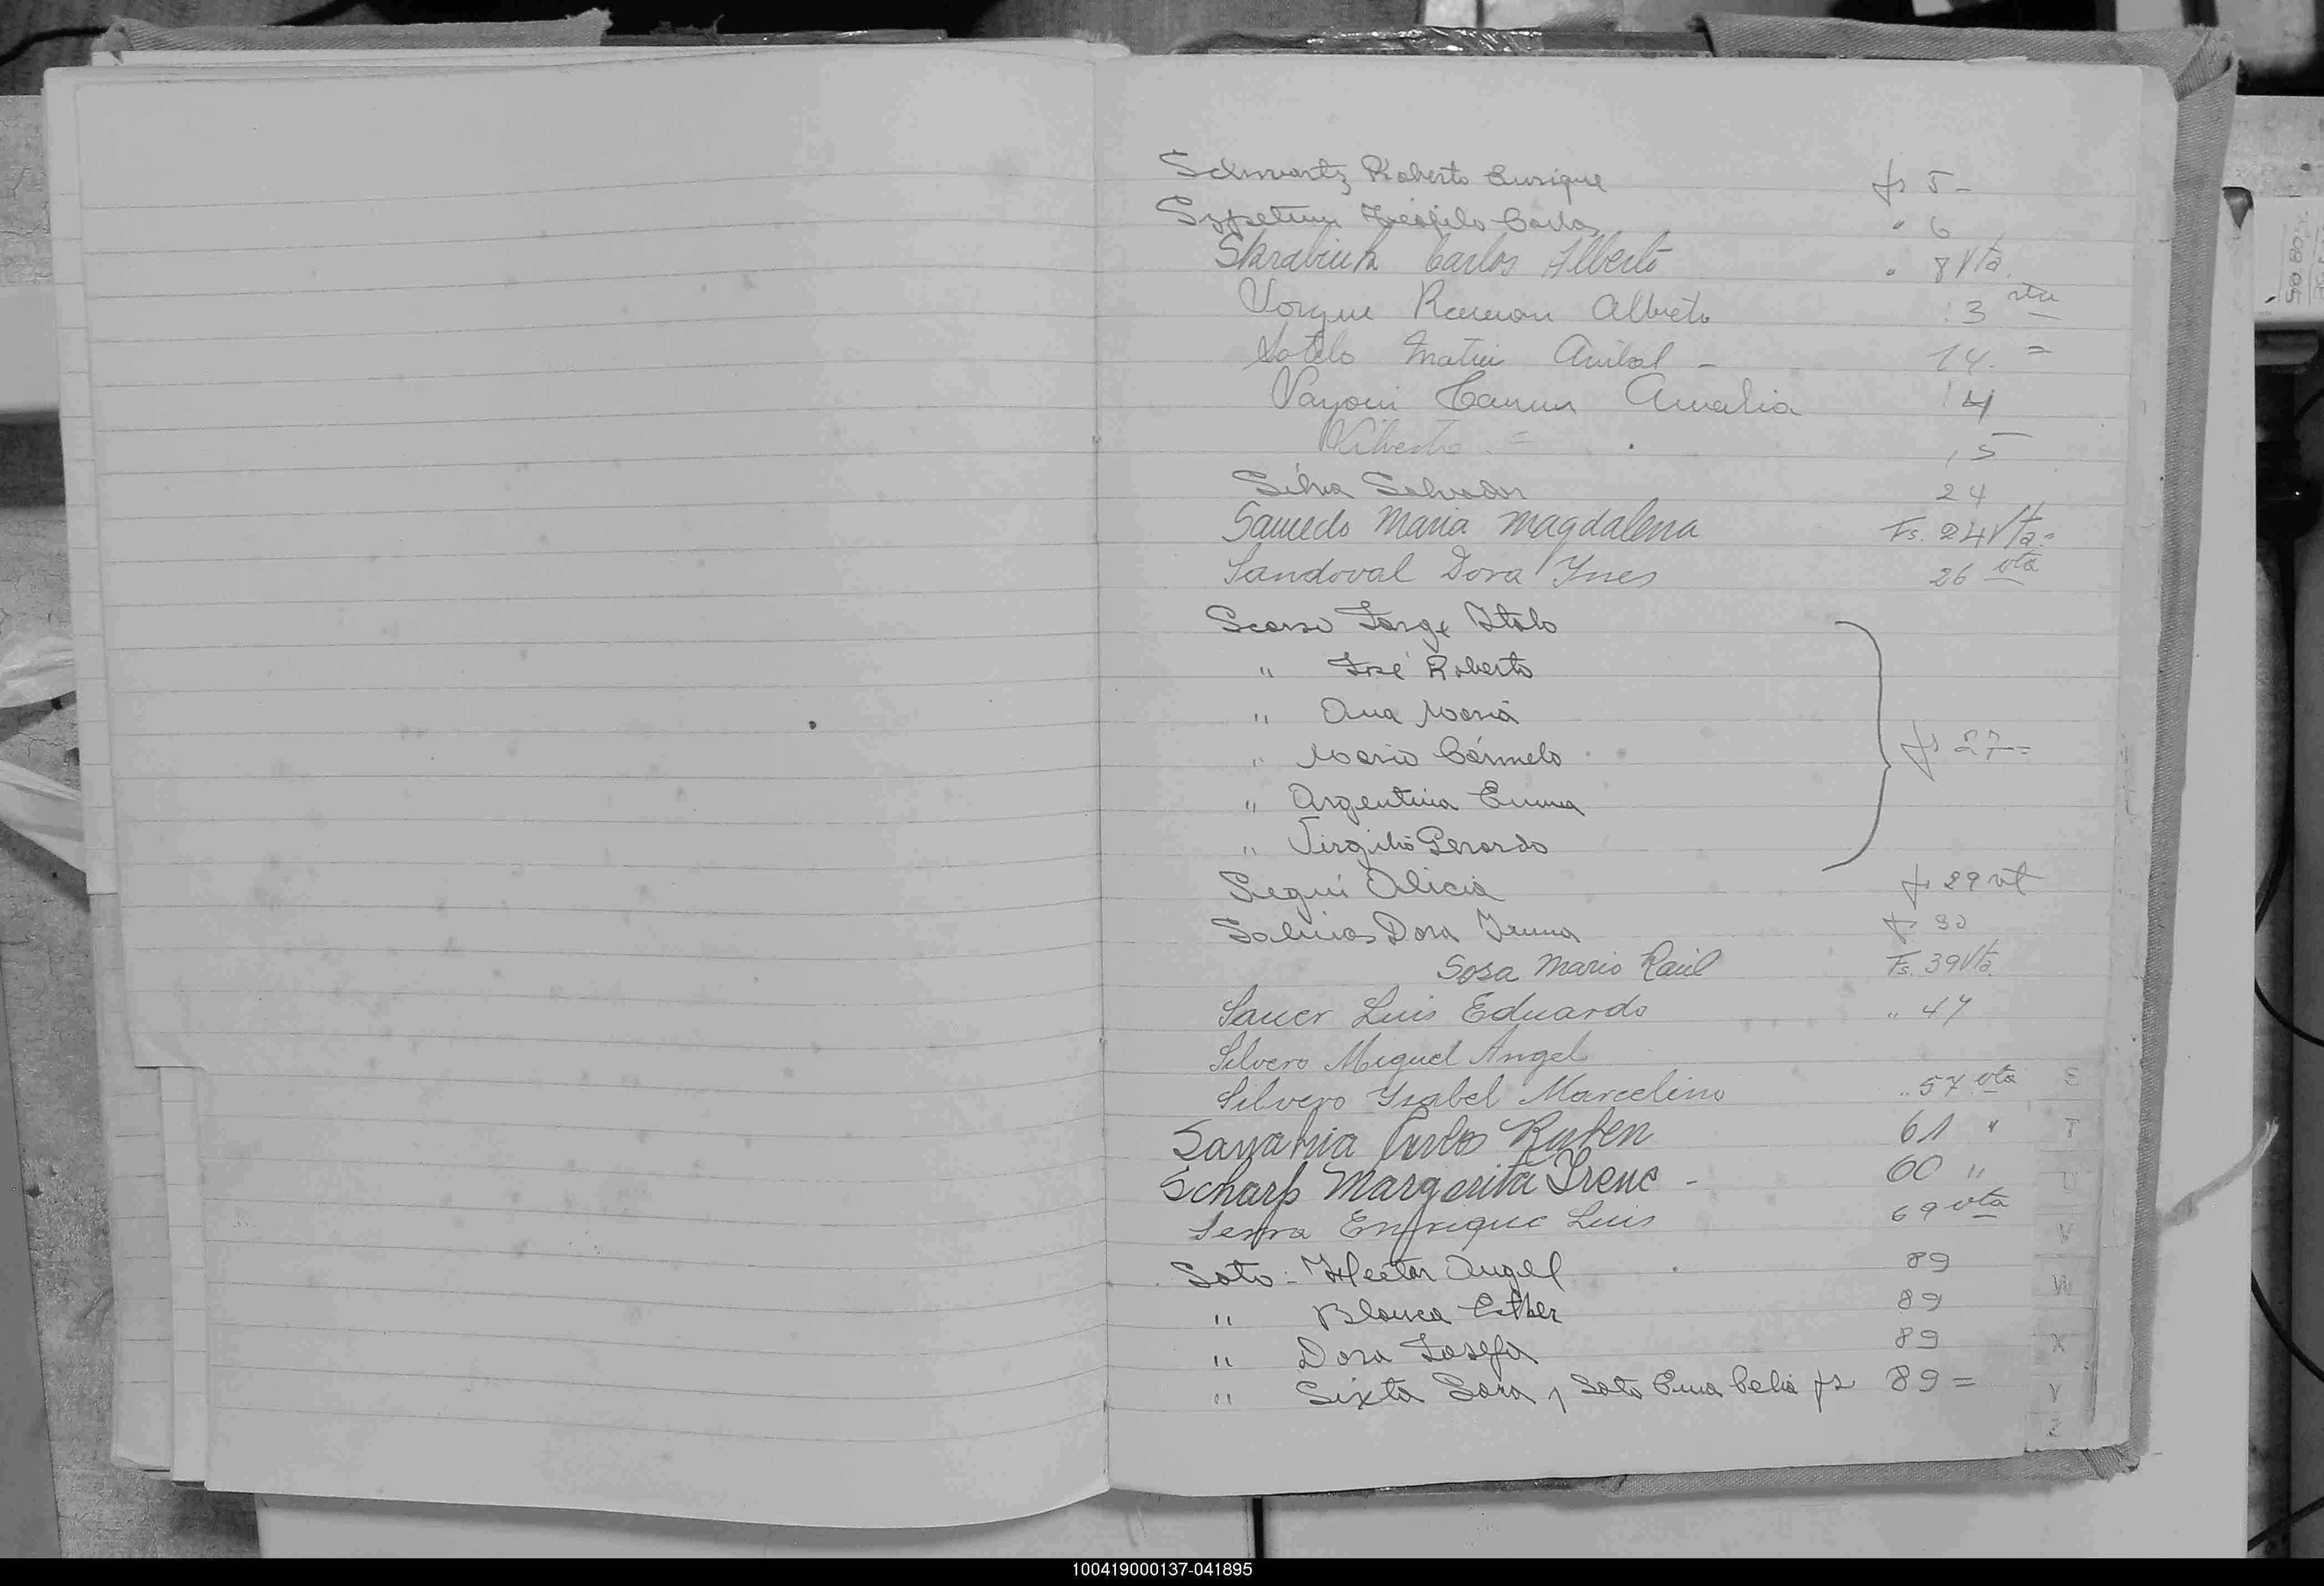 Schwartz Roberto Enrique fs 5-
Teófilo Carlos " 6
Skrabiuk Carlos Alberto " 8 Vta.
Ramon Alberto 13 vta
Sotelo Anibal - 14. =
Amalia 14
15
Silva Salvador 24
Saucedo Maria Magdalena Fs. 24 Vta=
Sandoval Dora Ynes 26 vta
Scorso Jorge Italo
" José Roberto
" Ana María
" Mario Cármelo
" Argentina Emma
" Virgilio Gerardo
fs 27=
Seguí Alicia fs 29 vt
Salinas Dora Irma fs 30
Sosa Mario Raúl Fs. 39 Vta.
Sauer Luis Eduardo " 47
Silvero Miguel Angel
Silvero Ysabel Marcelino " 57 vta
Carlos Ruben 61 "
Scharf Margarita Irene - 60 "
Serra Enrique Luis 69 vta
Soto - Hector Angel 89
" Blanca Esther 89
" Dora Josefa 89
" Sixta Sara y Soto Ema Celia fs 89 =
S
T
U
V
W
X
Y
Z
100419000137-041895